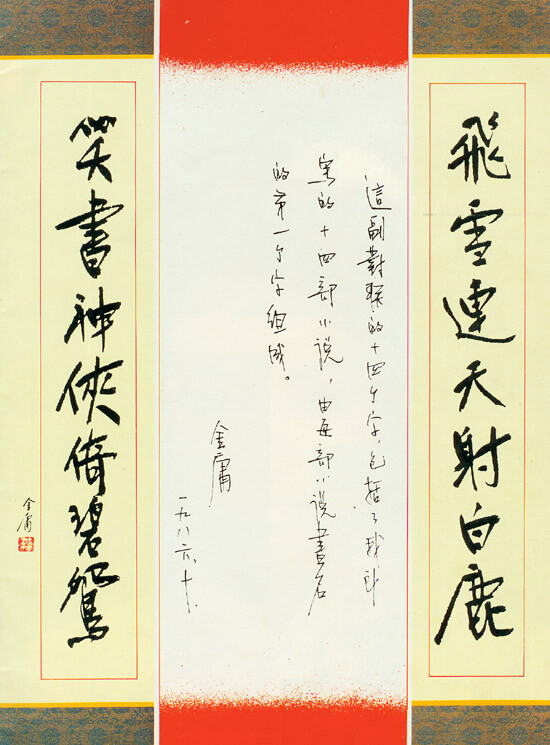 飛雪連天射白鹿
這副對聯的十四个字，包括了我所
寫的十四部小说，由每部小说書名
的第一个字組成。
金庸
一九八六、十.
笑書神俠倚碧鴛
金庸